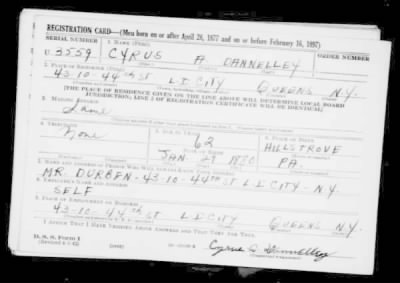 REGISTRATION CARD—(Men born on or after April 28, 1877 and on or before February 16, 1897)
SERIAL NUMBER 1. NAME (Print) ORDER NUMBER
U 3559 CYRUS A DANNELLEY
2. PLACE OF RESIDENCE (Print)
43-10-44th ST L.I. CITY QUEENS N.Y.
[THE PLACE OF RESIDENCE GIVEN ON THE LINE ABOVE WILL DETERMINE LOCAL BOARD
JURISDICTION; LINE 2 OF REGISTRATION CERTIFICATE WILL BE IDENTICAL]
3. MAILING ADDRESS
Same
4. TELEPHONE 5. AGE IN YEARS 6. PLACE OF BIRTH
None 62 HILLSGROVE
DATE OF BIRTH
JAN 29 1880 PA.
7. NAME AND ADDRESS OF PERSON WHO WILL ALWAYS KNOW YOUR ADDRESS
MR. DURBEN-43-10-44th ST L.I. CITY-N.Y.
8. EMPLOYER'S NAME AND ADDRESS
SELF
9. PLACE OF EMPLOYMENT OR BUSINESS
43-10-44th ST L.I. CITY QUEENS N.Y.
I AFFIRM THAT I HAVE VERIFIED ABOVE ANSWERS AND THAT THEY ARE TRUE.
D. S. S. Form 1
Cyrus A Dannelley